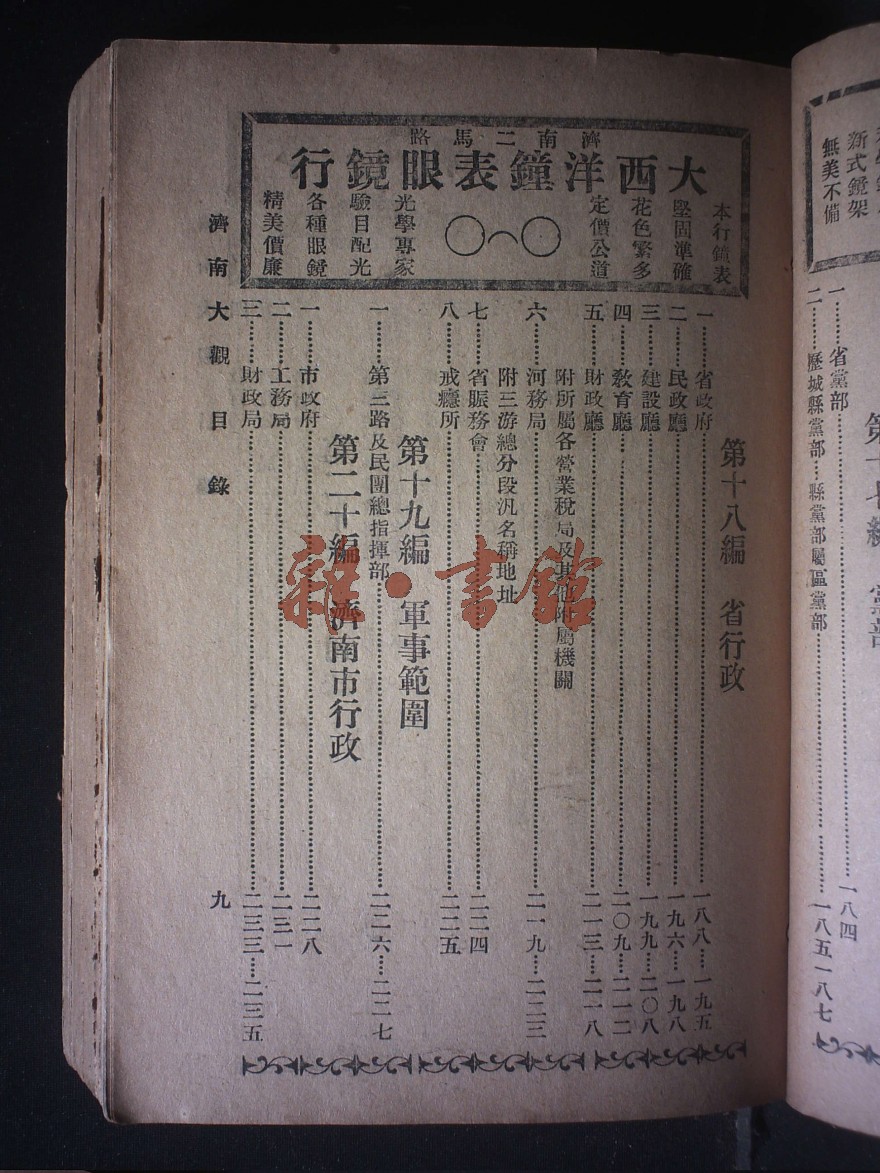 濟南二馬路
大西洋鐘表眼鏡行
本行鐘表
堅固準確
花色繁多
定價公道
光學專家
驗目配光
各種眼鏡
精美價廉
第十八編 省行政
一……省政府……一八八…一九五
二……民政廳……一九六…一九八
三……建設廳……一九九…二〇八
四……教育廳……二〇九…二一二
五……財政廳……二一三…二一八
附所屬各營業稅局及其他附屬機關
六……河務局……二一九…二二三
附三游總分段汛名稱地址
七……省賑務會……二二四
八……戒癮所……二二五
第十九編 軍事範圍
一……第三路及民團總指揮部……二二六…二二七
第二十編 濟南市行政
一……市政府……二二八
二……工務局……二三一
三……財政局……二三三…二三五
濟南大觀 目錄 九
新式鏡架
無美不備
第十七編 黨部
一……省黨部……一八四
二……歷城縣黨部…縣黨部屬區黨部……一八五一八七
雜·書館